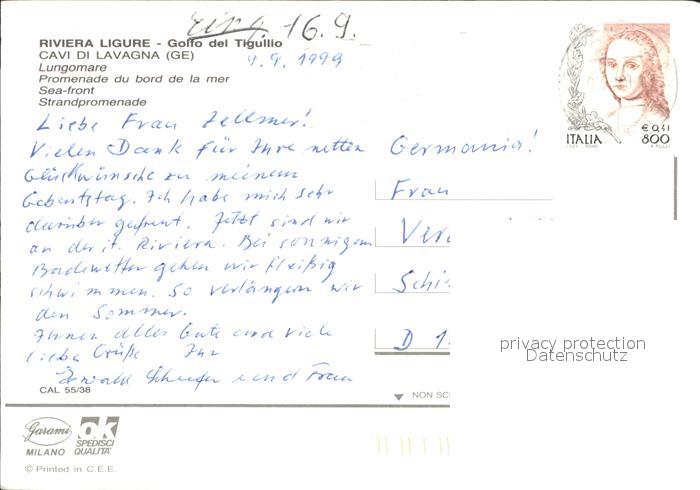 Eing. 16.9.
RIVIERA LIGURE - Golfo del Tigullio
CAVI DI LAVAGNA (GE)
9.9.1999
Lungomare
Promenade du bord de la mer
Sea-front
Strandpromenade
Liebe Frau Zellmer!
Vielen Dank für Ihre netten
Glückwünsche zu meinem
Geburtstag. Ich habe mich sehr
darüber gefreut. Jetzt sind wir
an der it. Riviera. Bei sonnigem
Badewetter gehen wir fleißig
schwimmen. So verlängern wir
den Sommer.
Ihnen alles Gute und viele
liebe Grüße Ihr
und Frau
CAL 55/38
Garami
MILANO
ok
SPEDISCI
QUALITA'
© Printed in C.E.E.
ITALIA
€ 0,41
800
Germania!
Frau
Ver
Schi
D 1
NON SC
privacy protection
Datenschutz